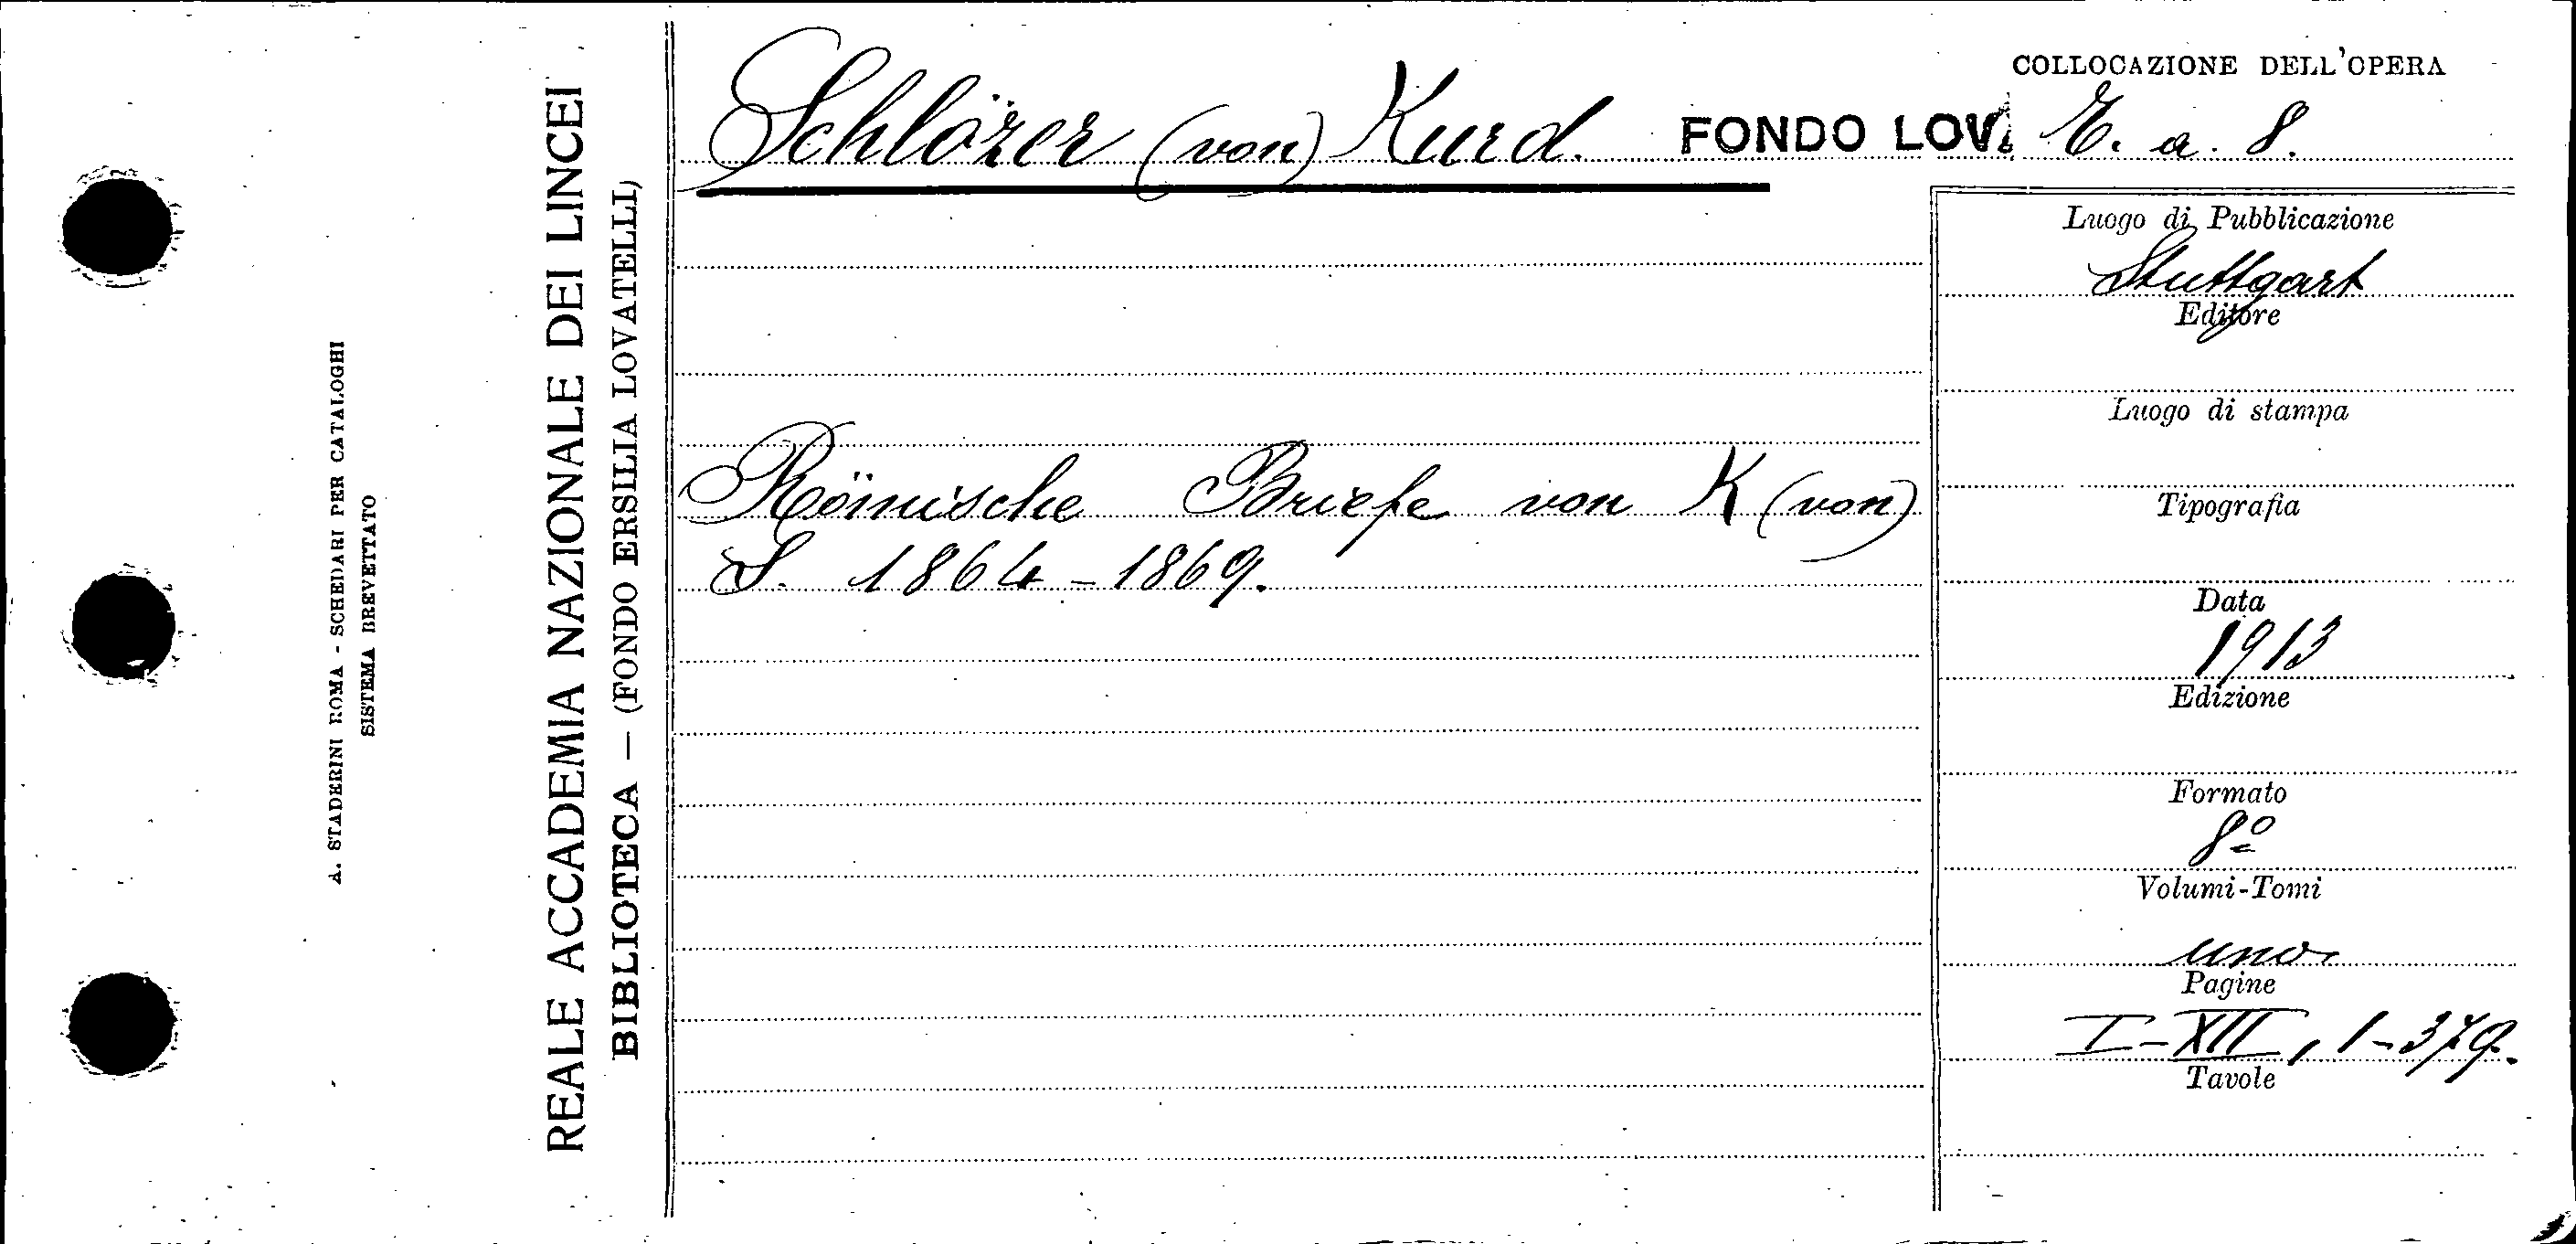 A. STADERINI ROMA - SCHEDARI PER CATALOGHI
SISTEMA BREVETTATO
REALE ACCADEMIA NAZIONALE DEI LINCEI
BIBLIOTECA — (FONDO ERSILIA LOVATELLI)
Schlözer (von) Kurd.
FONDO LOV.
COLLOCAZIONE DELL'OPERA
E. a. 8.
Römische Briefe von K (von)
S. 1864-1869.
Luogo di Pubblicazione
Stuttgart
Editore
Luogo di stampa
Tipografia
Data
1913
Edizione
Formato
8º
Volumi-Tomi
uno
Pagine
I-XII, 1-379.
Tavole